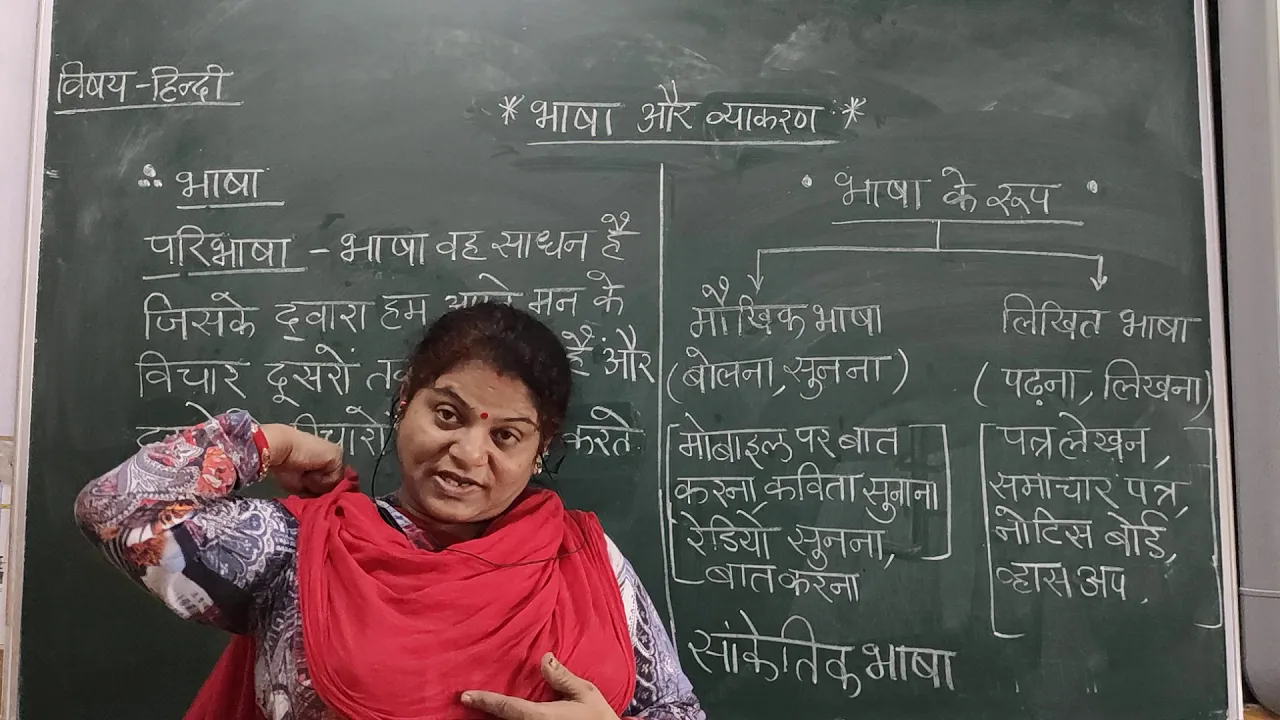 विषय-हिन्दी
* भाषा और व्याकरण *
∴ भाषा
परिभाषा - भाषा वह साधन है
जिसके द्वारा हम मन के
विचार दूसरों है और
करते
• भाषा के रूप •
मौखिक भाषा
(बोलना, सुनना)
[मोबाइल पर बात
करना, कविता सुनाना
रेडियो सुनना,
बात करना]
लिखित भाषा
(पढ़ना, लिखना)
[पत्र लेखन,
समाचार पत्र,
नोटिस बोर्ड,
व्हास अप.]
सांकेतिक भाषा